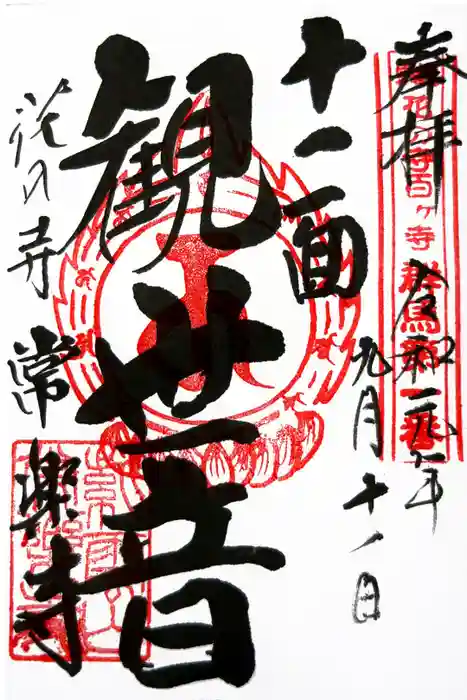 奉拝
花の寺百ヶ寺 群馬
令和元年
九月十一日
十一面
観世音
花の寺
常楽寺